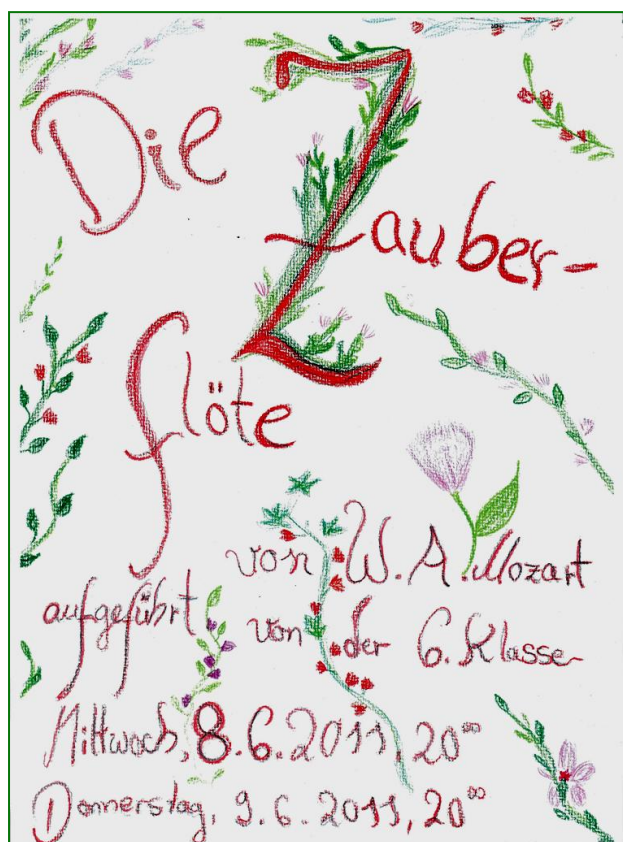 Die
Zauber-
flöte
von W. A. Mozart
aufgeführt von der 6. Klasse
Mittwoch, 8.6.2011, 20⁰⁰
Donnerstag, 9.6.2011, 20⁰⁰